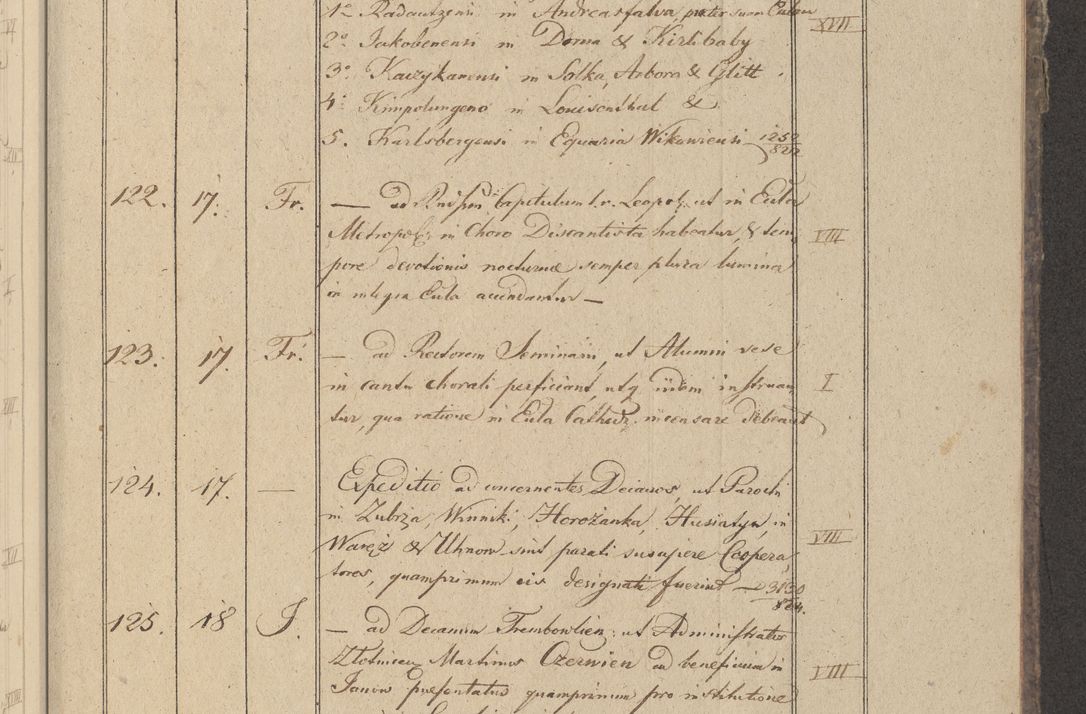 1º Radautzensi in Andreasfalva, praeter suam Eccliam XVIII
2º Jakobenensi in Dorna & Kirlibaby
3º Kaczykanensi in Solka, Arbora & Glitt
4º Kimpolungeno in Louisenthal &
5. Karlsbergensi in Equaria Wikowiensi
122. 17. Fr. — ad Capitulum l. r. Leopol. ut in Eccla
Metropol. in Choro Discantista habeatur, & tem VIII
pore devotionis nocturnae semper plura lumina
in integra Eccla accendantur —
123. 17. Fr. — ad Rectorem Seminarii, ut Alumni sese
in cantu chorali perficiant, utq iidem instruan I
tur, qua ratione in Eccla Cathedr. incensare debeant
124. 17. — Expeditio ad concernentes Decanos, ut Parochi
in Zubrza, Winniki, Horożanka, Husiatyn, in
Waręż & Uhnow sint parati suscipere Coopera VIII
tores, quamprimum eis designati fuerint —
125. 18 J. — ad Decanum Trembowlien. ut Administrator
Złotnicen Martinus Czerwien ad beneficium in VIII
Janow praesentatus quamprimum pro institutione